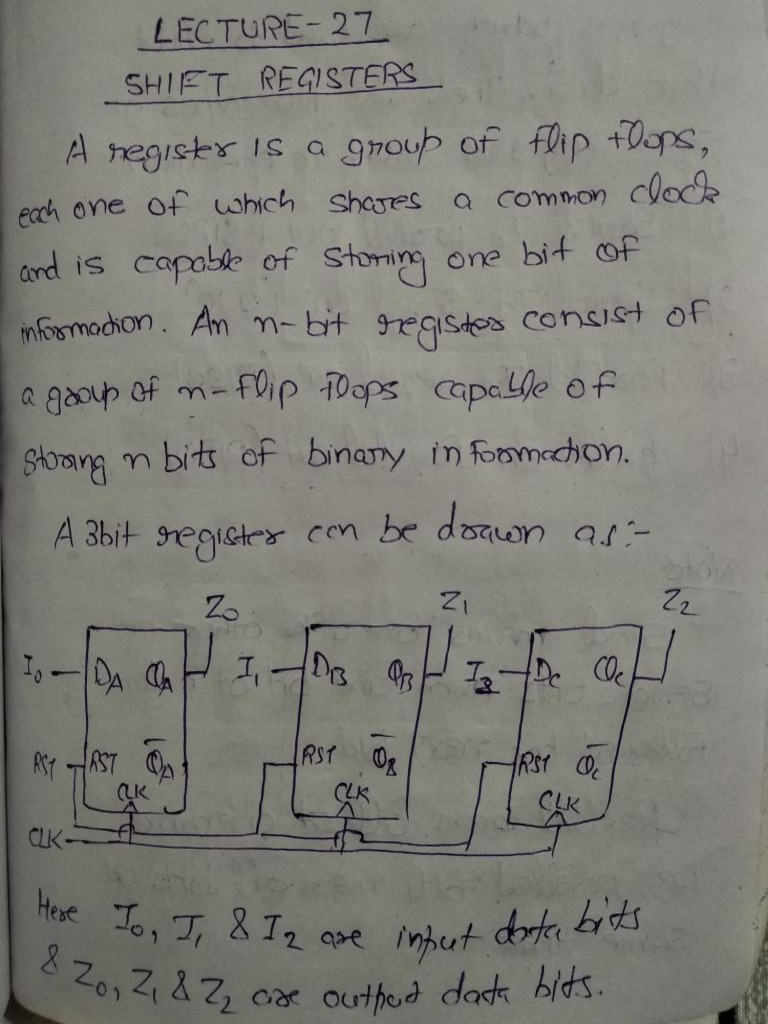 LECTURE-27
SHIFT REGISTERS
A register is a group of flip flops,
each one of which shares a common clock
and is capable of storing one bit of
information. An n-bit register consist of
a group of n-flip flops capable of
storing n bits of binary information.
A 3bit register can be drawn as:-
Z0 Z1 Z2
I0 DA QA I1 DB QB I2 DC QC
RST RST Q̅A RST Q̅B RST Q̅C
CLK CLK CLK
CLK
Here I0, I1 & I2 are input data bits
& Z0, Z1 & Z2 are output data bits.